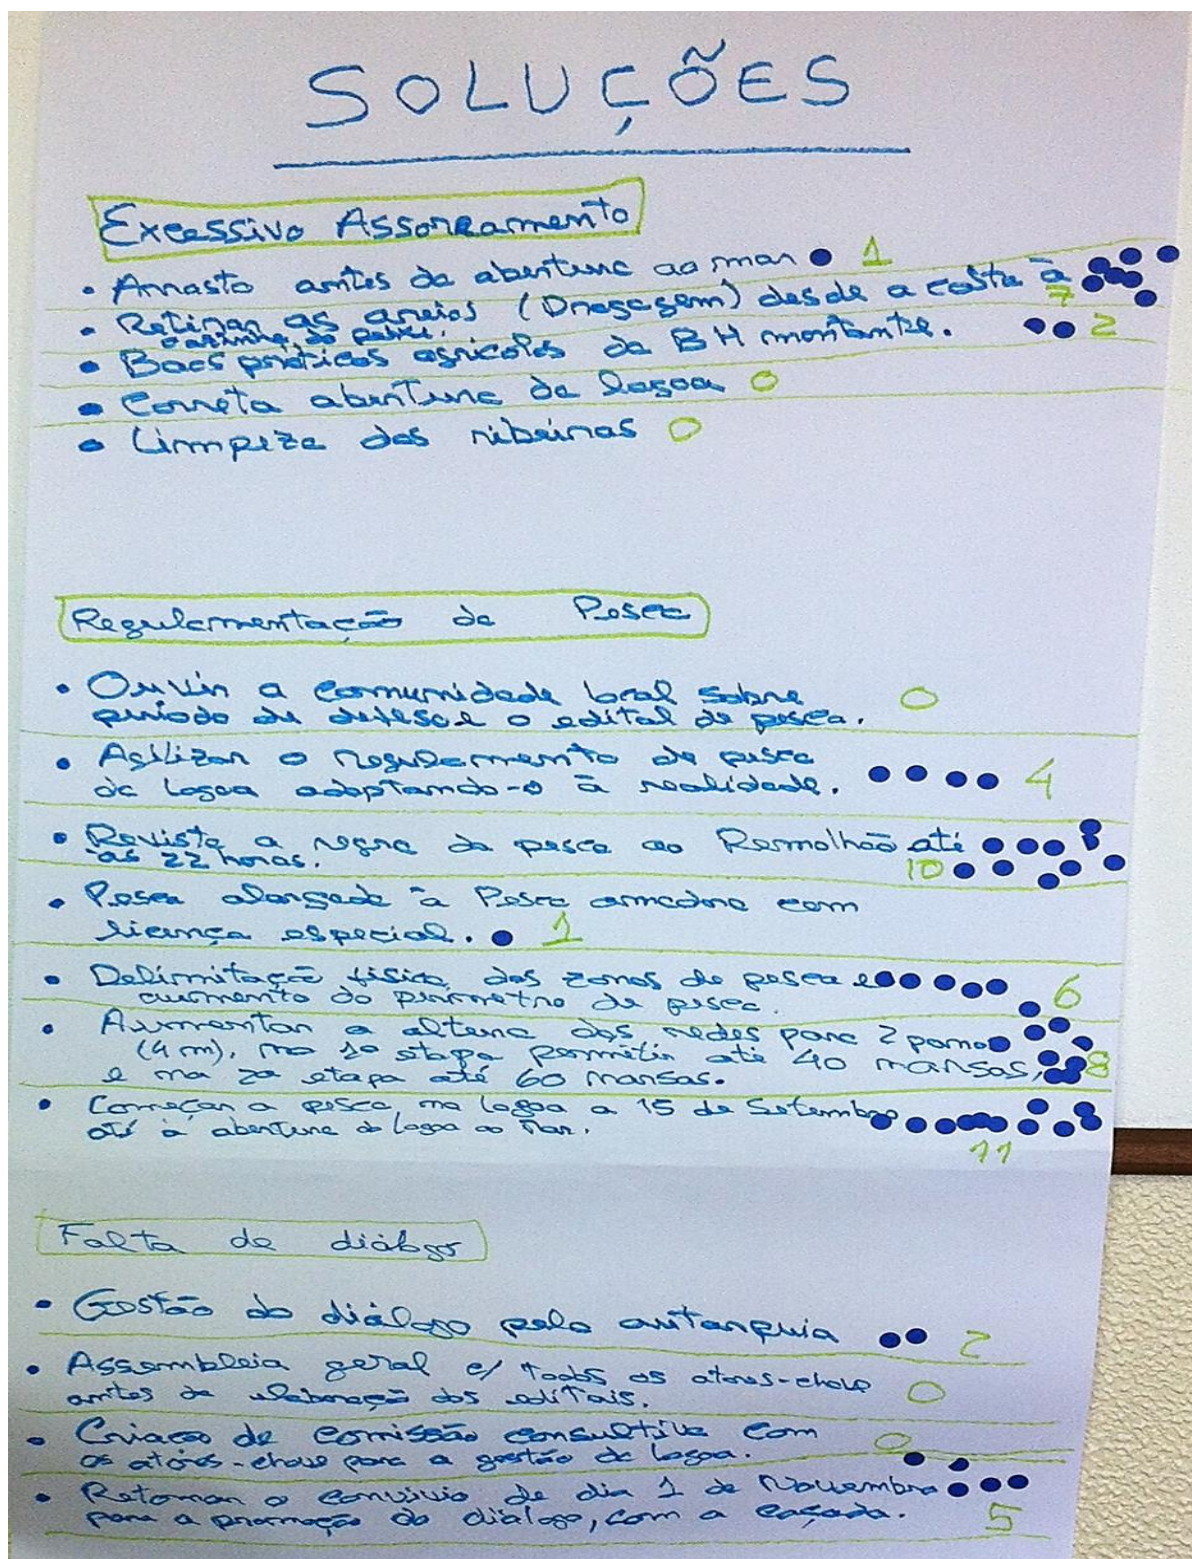 SOLUÇÕES
Excessivo Assoreamento
• Arrasto antes da abertura ao mar 1
• Retirar as areias (Dragagem) desde a costa à 7
casinha do patru.
• Boas práticas agrícolas da BH montante. 2
• Correta abertura da lagoa 0
• Limpeza das ribeiras 0
Regulamentação da Pesca
• Ouvir a comunidade local sobre 0
período de defeso e o edital de pesca.
• Agilizar o regulamento de pesca
da Lagoa adaptando-o à realidade. 4
• Revista a regra da pesca ao Remolhão até
às 22 horas. 10
• Pesca alargada à Pesca armadora com
licença especial. 1
• Delimitação física das zonas de pesca e
aumento do perímetro de pesca. 6
• Aumentar a altura das redes para 2 panos
(4 m), na 1a etapa permitir até 40 mansas, 8
e na 2a etapa até 60 mansas.
• Começar a pesca, na lagoa a 15 de Setembro
até à abertura da lagoa ao Mar.
11
Falta de diálogo
• Gestão do diálogo pela autarquia 2
• Assembleia geral c/ todos os atores-chave
antes da elaboração dos editais. 0
• Criação de comissão consultiva com 0
os atores-chave para a gestão da lagoa.
• Retomar o convívio de dia 1 de Novembro
para a promoção do diálogo, com a caçada. 5